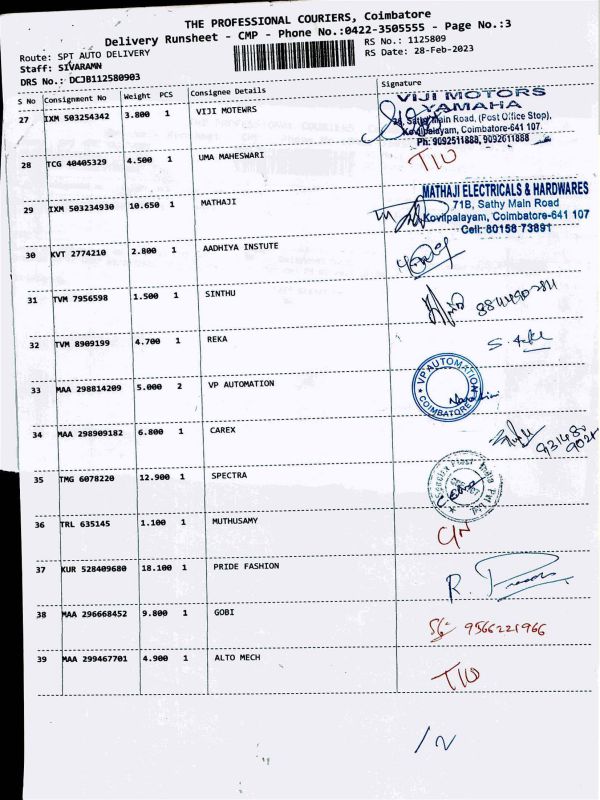 THE PROFESSIONAL COURIERS, Coimbatore
Delivery Runsheet - CMP - Phone No.:0422-3505555 - Page No.:3
Route: SPT AUTO DELIVERY
RS No.: 1125809
Staff: SIVARAMN
RS Date: 28-Feb-2023
DRS No.: DCJB112580903
S No Consignment No Weight PCS Consignee Details Signature
27 IXM 503254342 3.800 1 VIJI MOTEWRS
VIJI MOTORS
YAMAHA
Sathy Main Road, (Post Office Stop),
Kovilpalayam, Coimbatore-641 107.
Ph: 9092511888, 9092611888
28 TCG 40405329 4.500 1 UMA MAHESWARI
29 IXM 503234930 10.650 1 MATHAJI
MATHAJI ELECTRICALS & HARDWARES
71B, Sathy Main Road
Kovilpalayam, Coimbatore-641 107
Cell: 80158 73891
30 KVT 2774210 2.800 1 AADHIYA INSTUTE
31 TVM 7956598 1.500 1 SINTHU
32 TVM 8909199 4.700 1 REKA
33 MAA 298814209 5.000 2 VP AUTOMATION
VP AUTOMATION
COIMBATORE
34 MAA 298909182 6.800 1 CAREX
35 TMG 6078220 12.900 1 SPECTRA
36 TRL 635145 1.100 1 MUTHUSAMY
37 KUR 528409680 18.100 1 PRIDE FASHION
38 MAA 296668452 9.800 1 GOBI
9566221966
39 MAA 299467701 4.900 1 ALTO MECH